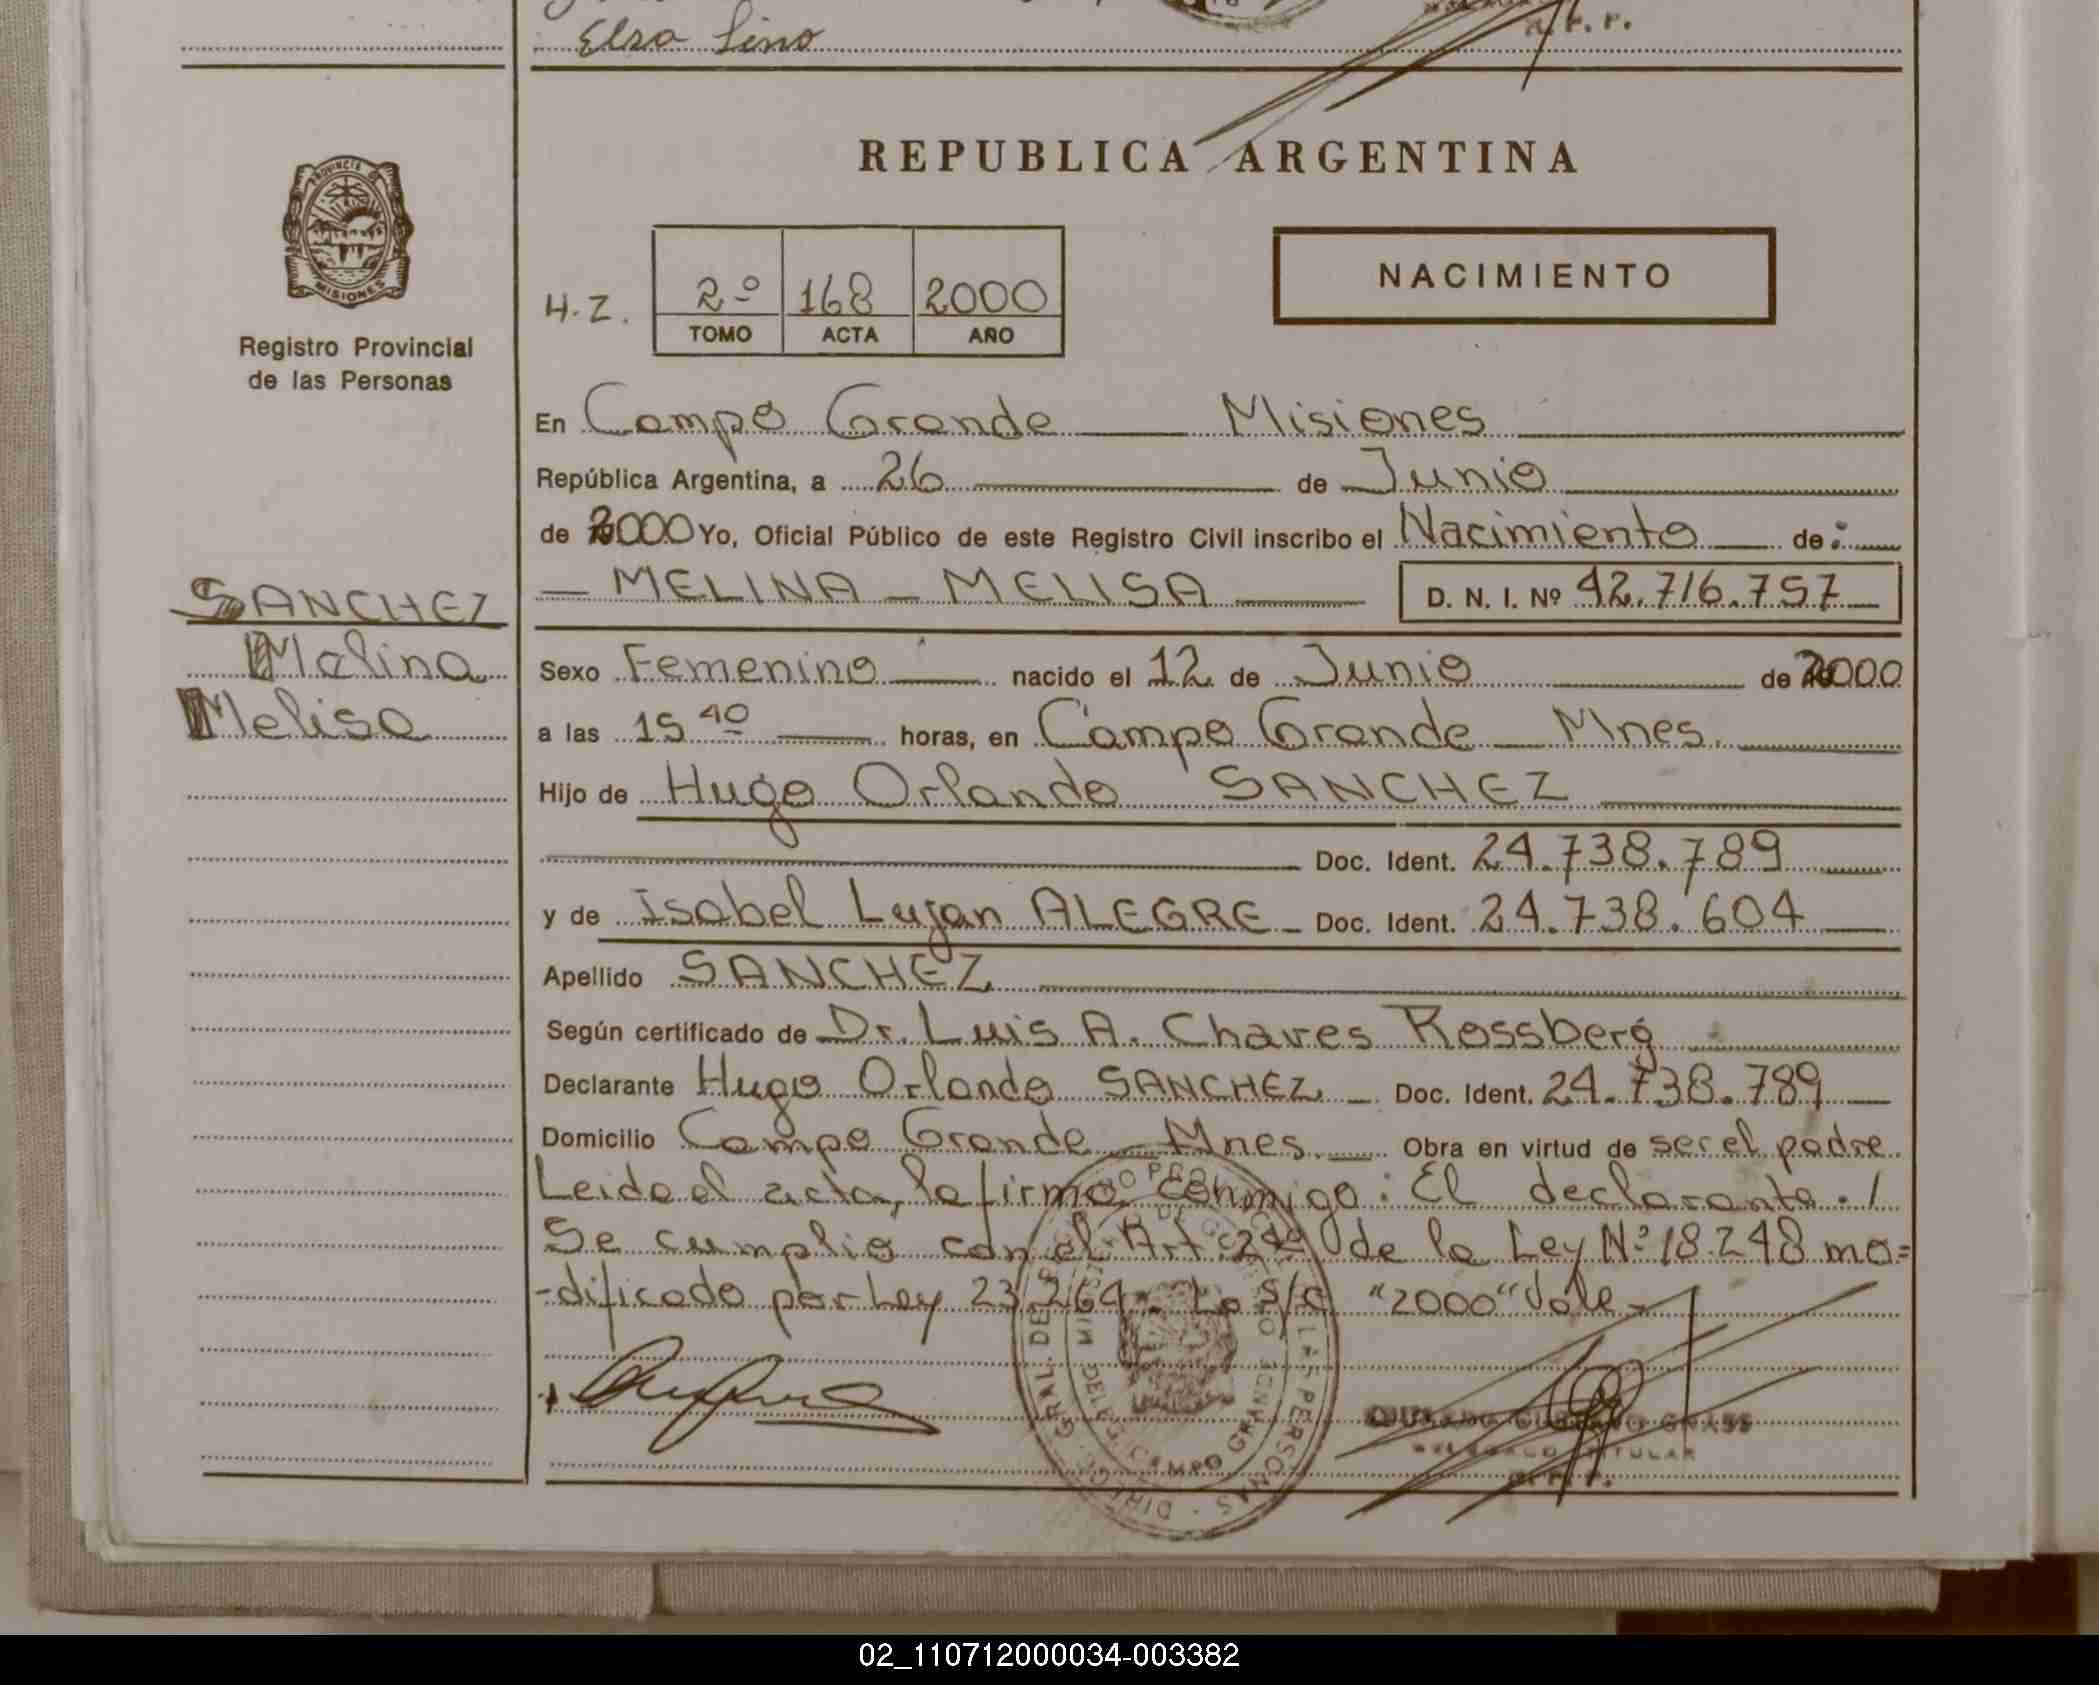 Elsa Lino
REPUBLICA ARGENTINA
PROVINCIA DE
MISIONES
Registro Provincial
de las Personas
NACIMIENTO
H.Z.
2º 168 2000
TOMO ACTA AÑO
En Campo Grande Misiones
República Argentina, a 26 de Junio
de 2000 Yo, Oficial Público de este Registro Civil inscribo el Nacimiento de:
SANCHEZ
Melina
Melisa
MELINA - MELISA D. N. I. Nº 42.716.757
Sexo Femenino nacido el 12 de Junio de 2000
a las 15 40 horas, en Campo Grande - Mnes.
Hijo de Hugo Orlando SANCHEZ
Doc. Ident. 24.738.789
y de Isabel Lujan ALEGRE Doc. Ident. 24.738.604
Apellido SANCHEZ
Según certificado de Dr. Luis A. Chaves Rossberg
Declarante Hugo Orlando SANCHEZ Doc. Ident. 24.738.789
Domicilio Campo Grande Mnes. Obra en virtud de ser el padre
Leida el acta, la firma conmigo: El declarante./
Se cumplio con el Art. 2do de la Ley Nº 18.248 mo=
-dificado por Ley 23.264. Lo s/c "2000" Vale
DIREC. GRAL. DEL REGISTRO PROVINCIAL DE LAS PERSONAS
CAMPO GRANDE
GUSTAVO GRASS
TITULAR
R.P.P.
02_110712000034-003382